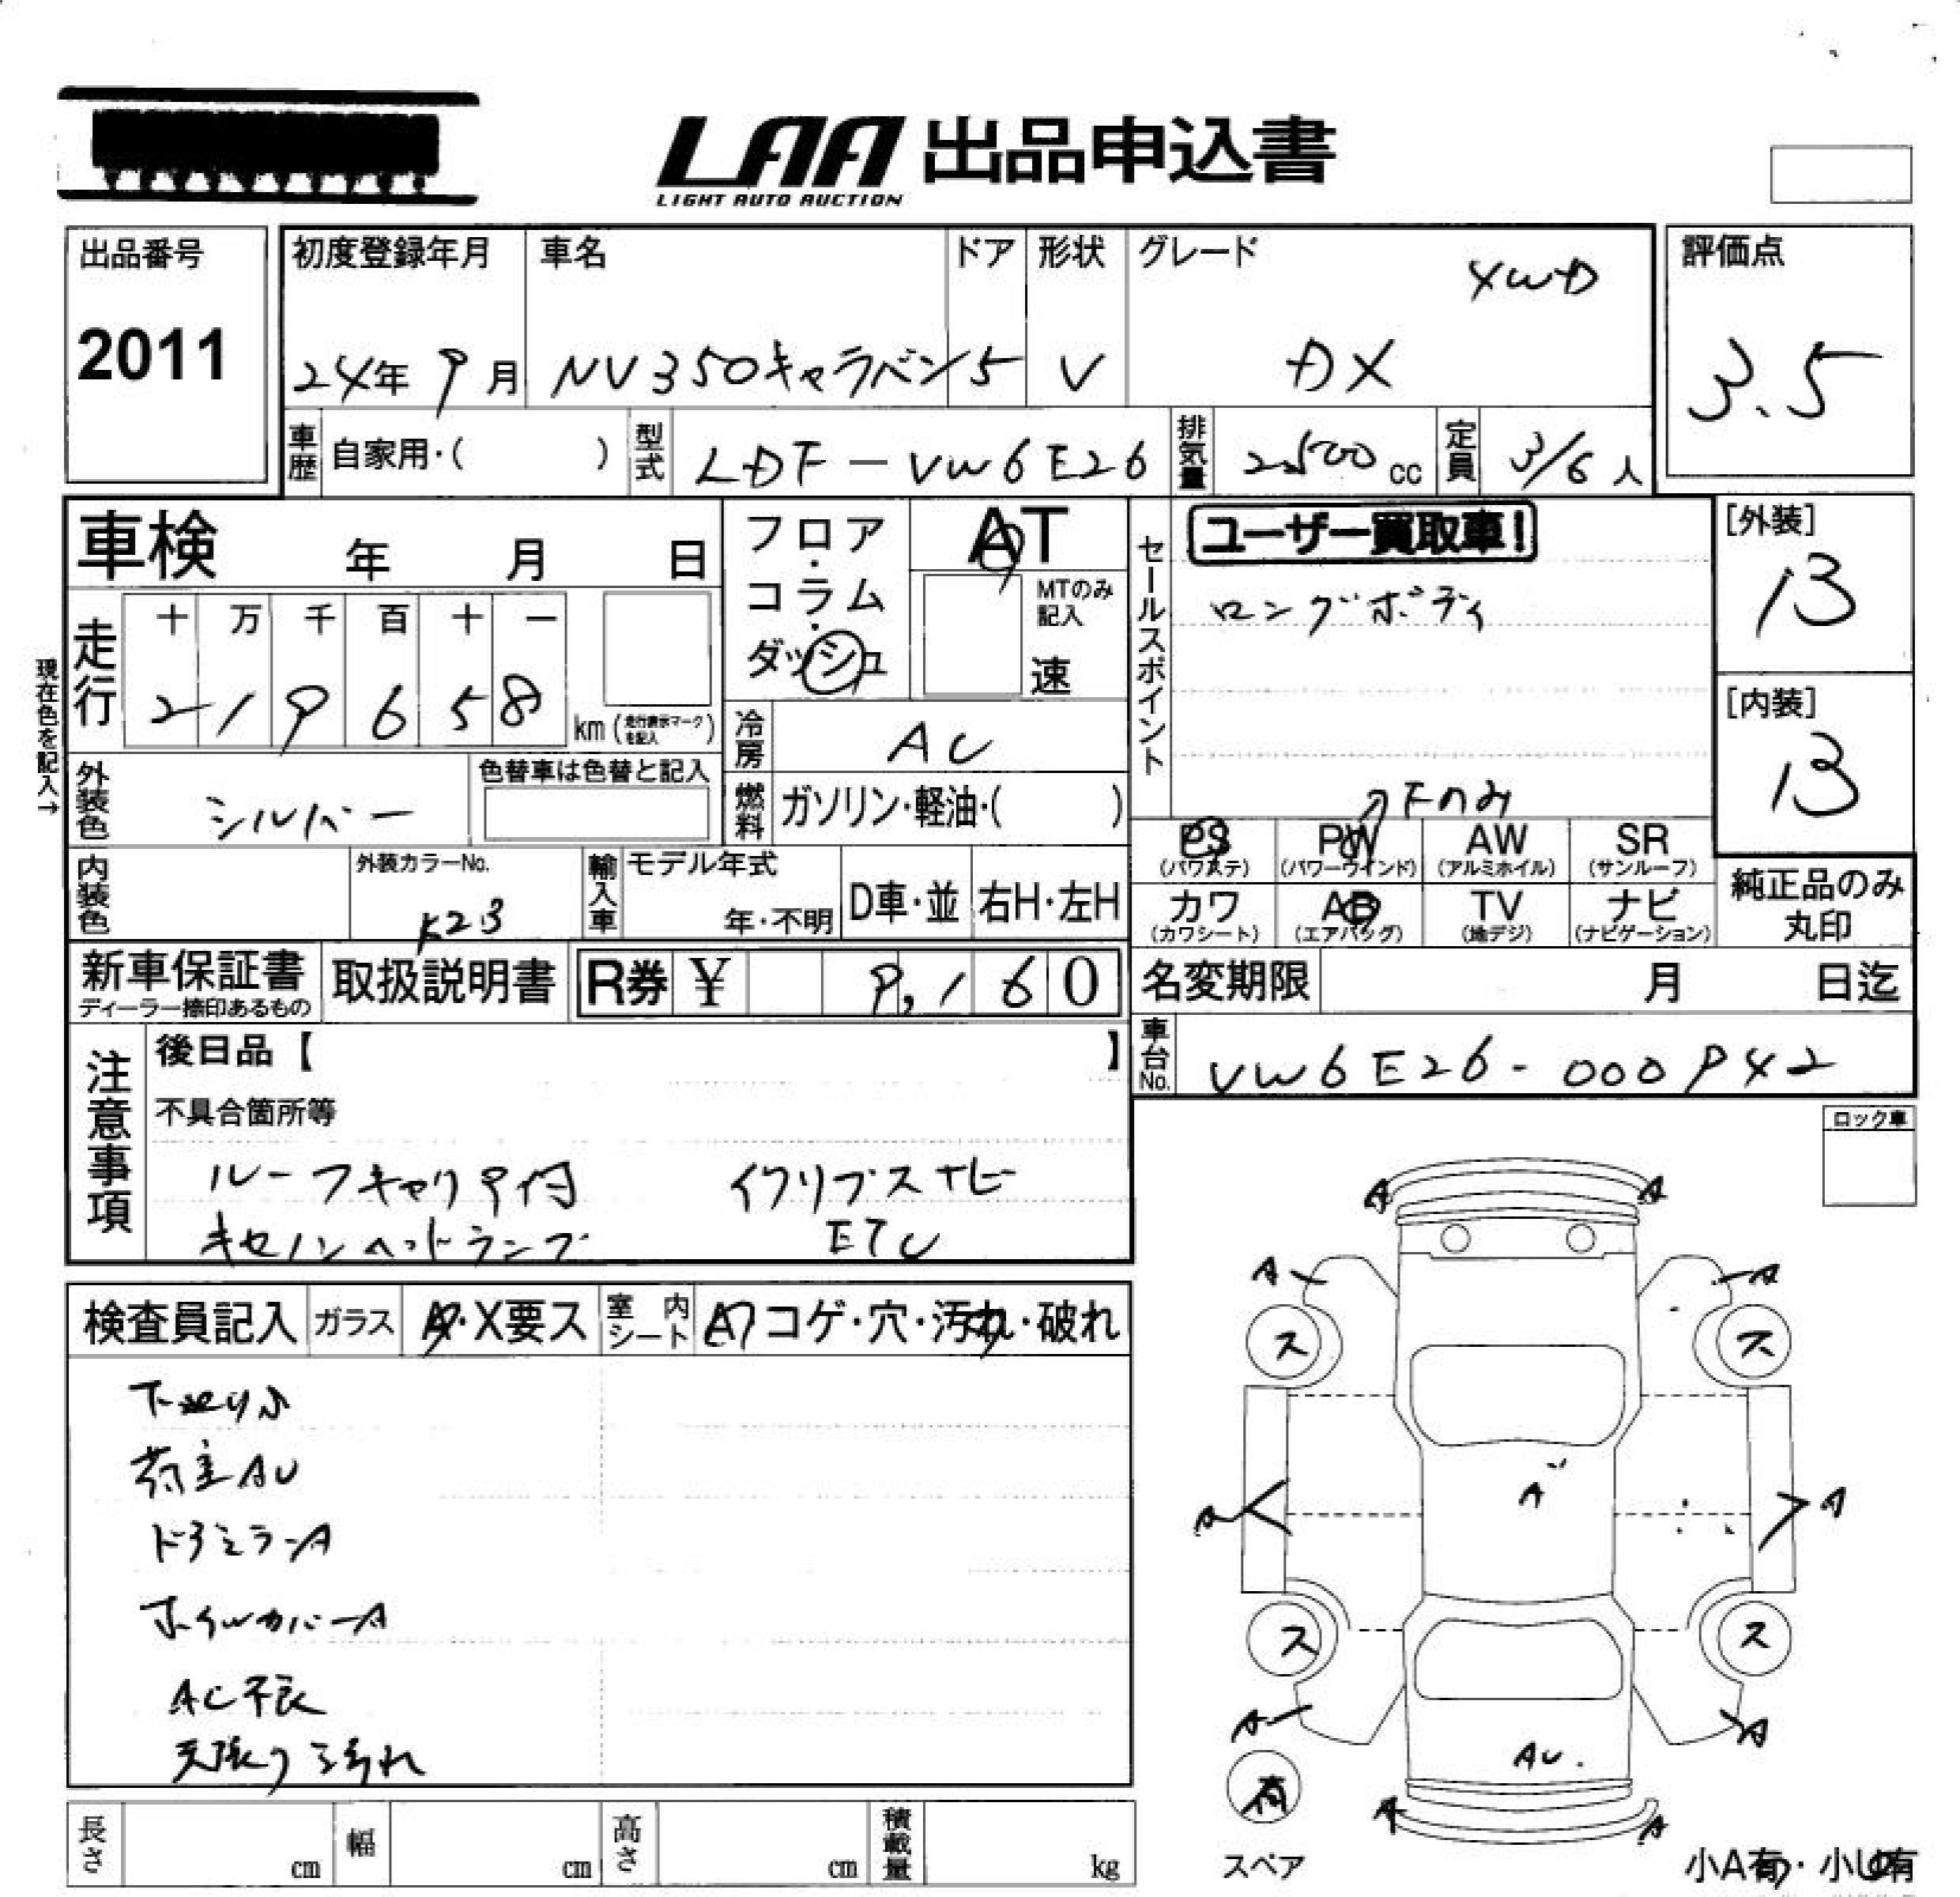 LAA 出品申込書
LIGHT AUTO AUCTION
出品番号
2011
初度登録年月
24年 9月
車名
NV350キャラバン
ドア
5
形状
V
グレード
4WD
DX
評価点
3.5
車歴 自家用・( )
型式 LDF-VW6E26
排気量 2500 cc
定員 3/6 人
車検 年 月 日
現在色を記入→
走行
十 万 千 百 十 一
2 1 9 6 5 8
km (走行表示マークを記入)
フロア・コラム・ダッシュ
AT
MTのみ記入
速
冷房 AC
燃料 ガソリン・軽油・( )
外装色 シルバー
色替車は色替と記入
内装色
外装カラーNo.
K23
輸入車
モデル年式
年・不明
D車・並
右H・左H
セールスポイント
ユーザー買取車!
ロングボディ
↗Fのみ
PS (パワステ)
PW (パワーウインド)
AW (アルミホイル)
SR (サンルーフ)
カワ (カワシート)
AB (エアバッグ)
TV (地デジ)
ナビ (ナビゲーション)
[外装]
B
[内装]
B
純正品のみ
丸印
新車保証書
ディーラー捺印あるもの
取扱説明書
R券 ¥ 9,160
名変期限 月 日迄
車台No. VW6E26-000942
注意事項
後日品【 】
不具合箇所等
ルーフキャリア付 イクリプスナビ
キセノンヘッドランプ ETC
ロック車
検査員記入
ガラス A・X要ス
室内シート Aコゲ・穴・汚れ・破れ
荷室AU
ドアミラーA
ホイルカバーA
AC不良
天張り汚れ
A A
A A
ス ス
A
A A
ス ス
A A
AU.
有
A A
スペア
小A有・小U有
長さ cm
幅 cm
高さ cm
積載量 kg